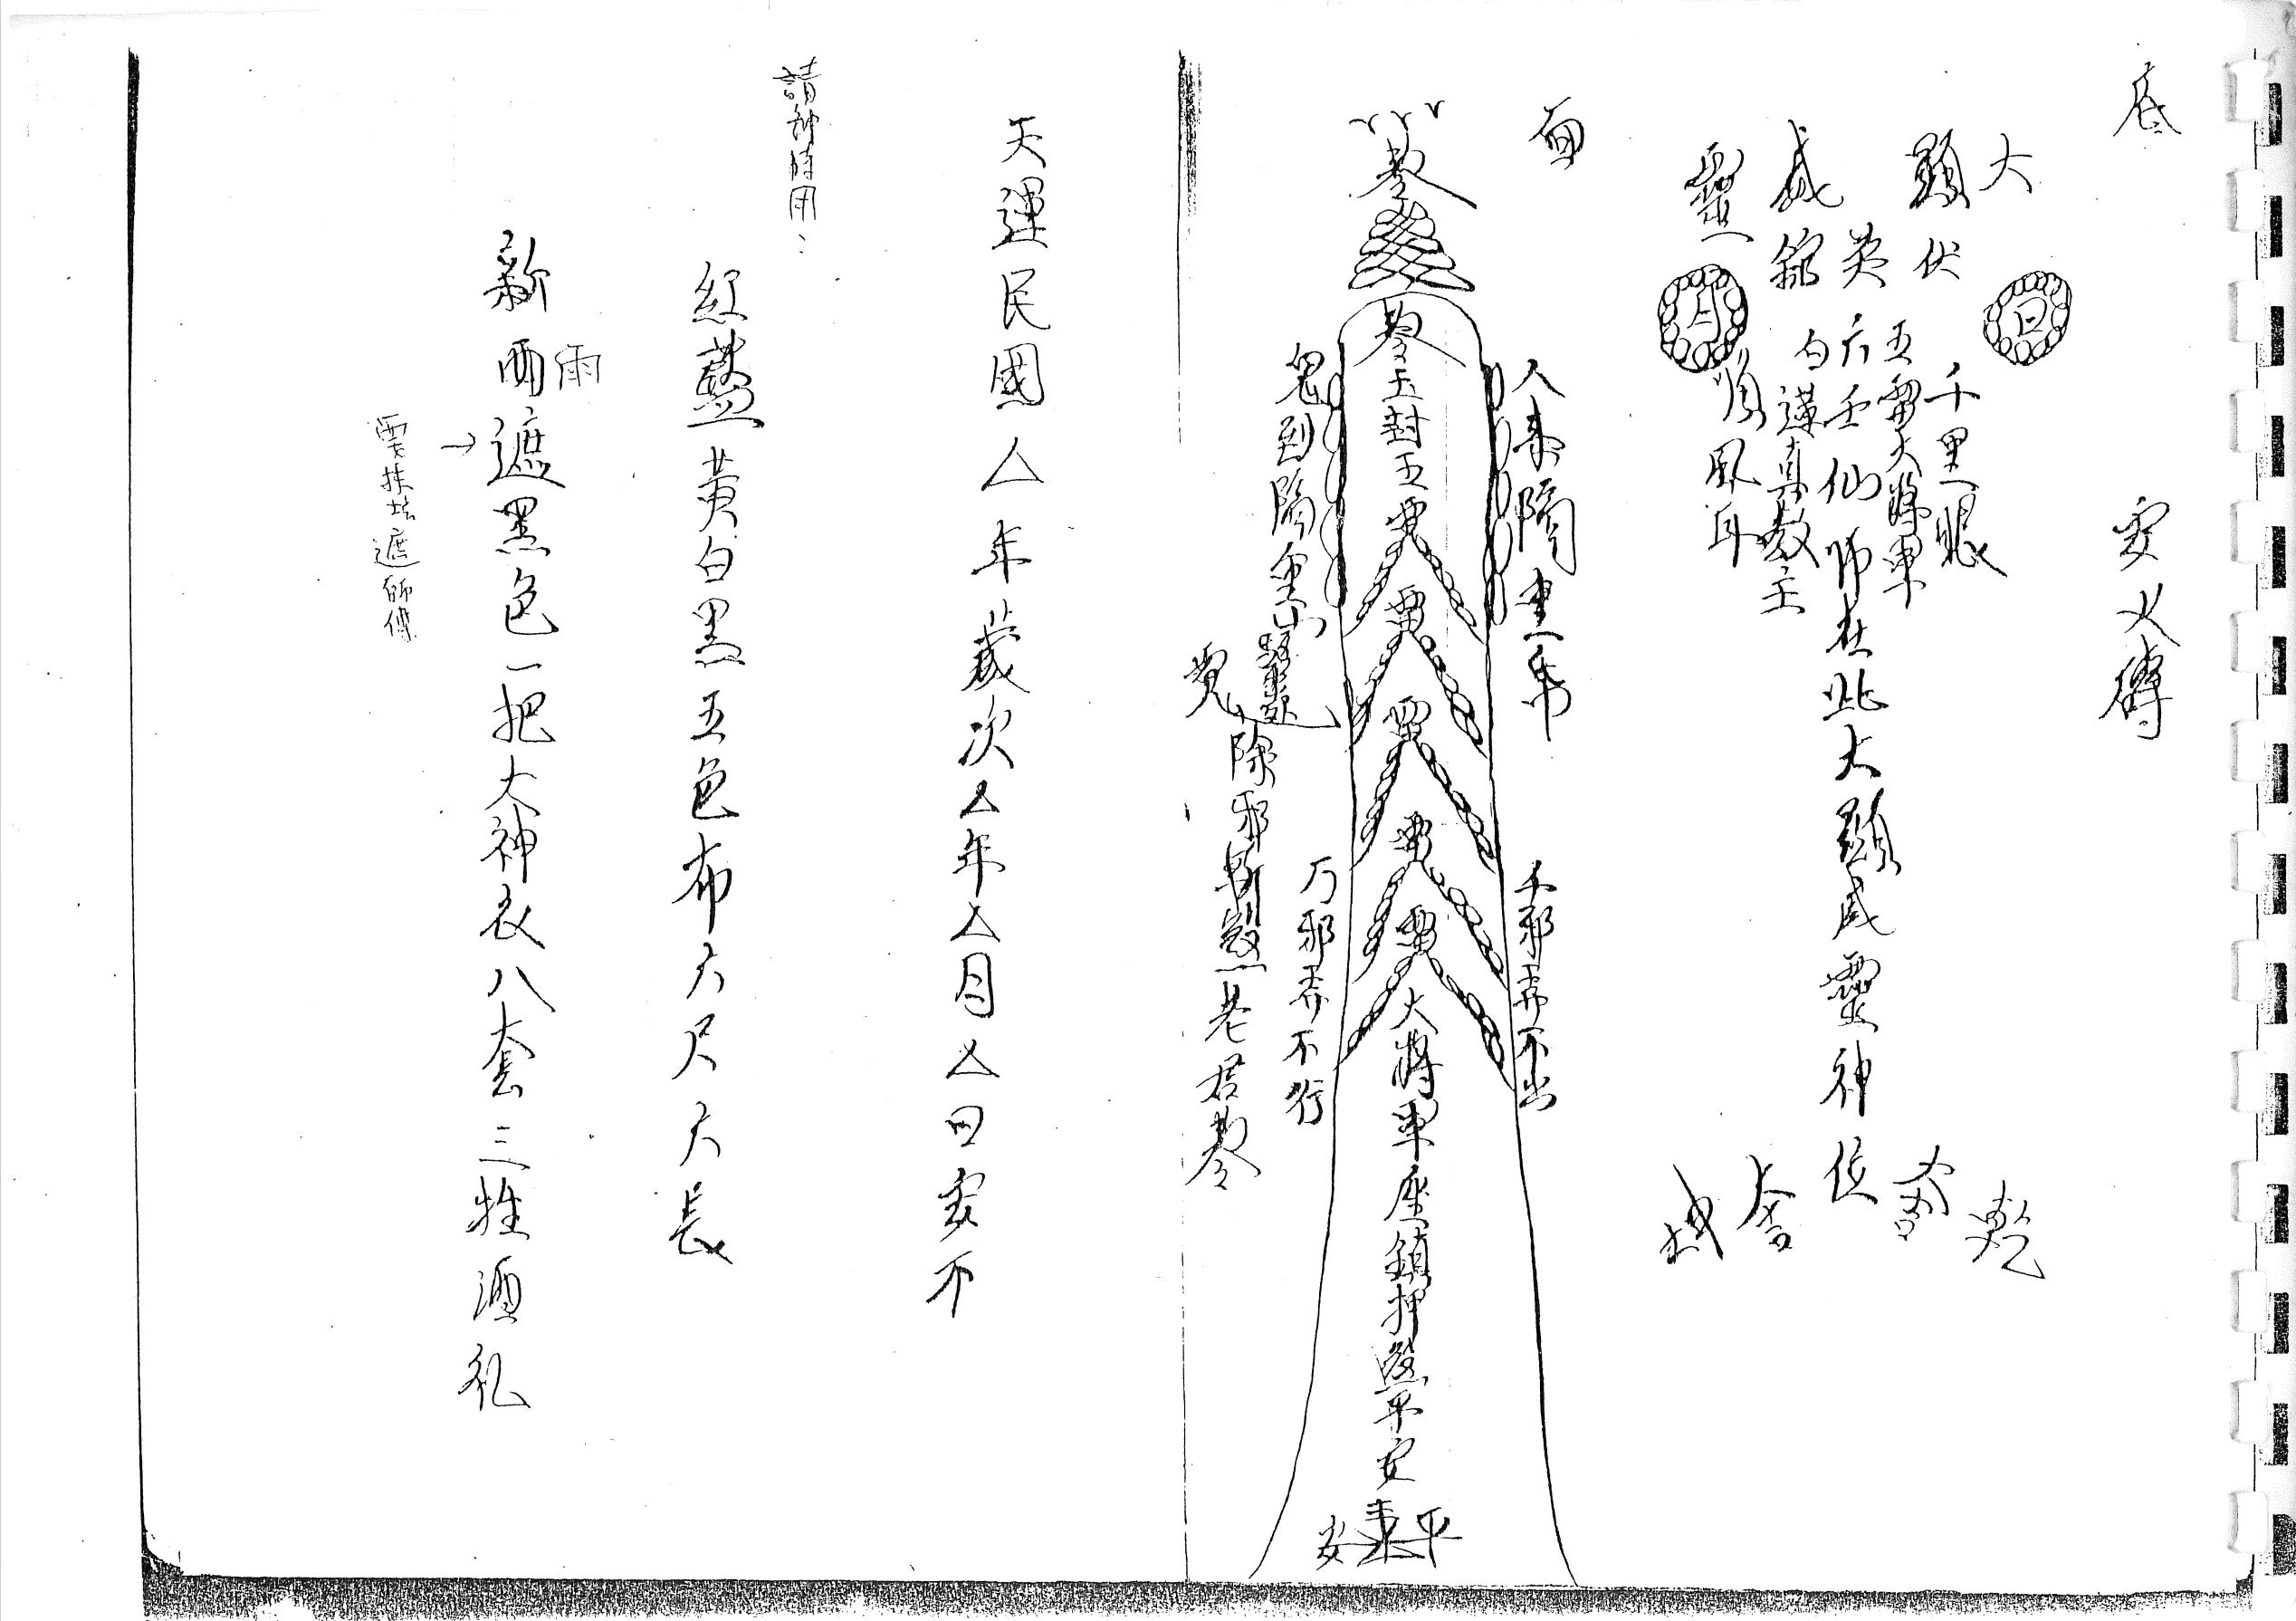 底
安火磚
大
日
千里眼
顯伏
五雷大將軍
英六壬仙师在此大顯威靈神位
威
勾進真教主
靈
月
順風耳
乾
面
人来隔重紙
千邪弄不出
勅令
勅令玉封五雷雷雷雷雷大將軍座鎮押煞平安
平安
鬼到隔重山
万邪弄不行
除邪斬煞老君勅令
天運民國△年歲次△年△月△日安不
請神時用:
紅藍黃白黑五色布六尺六長
新雨遮黑色一把大神衣八套三牲酒礼
雨
→
要抹壇遮師傅